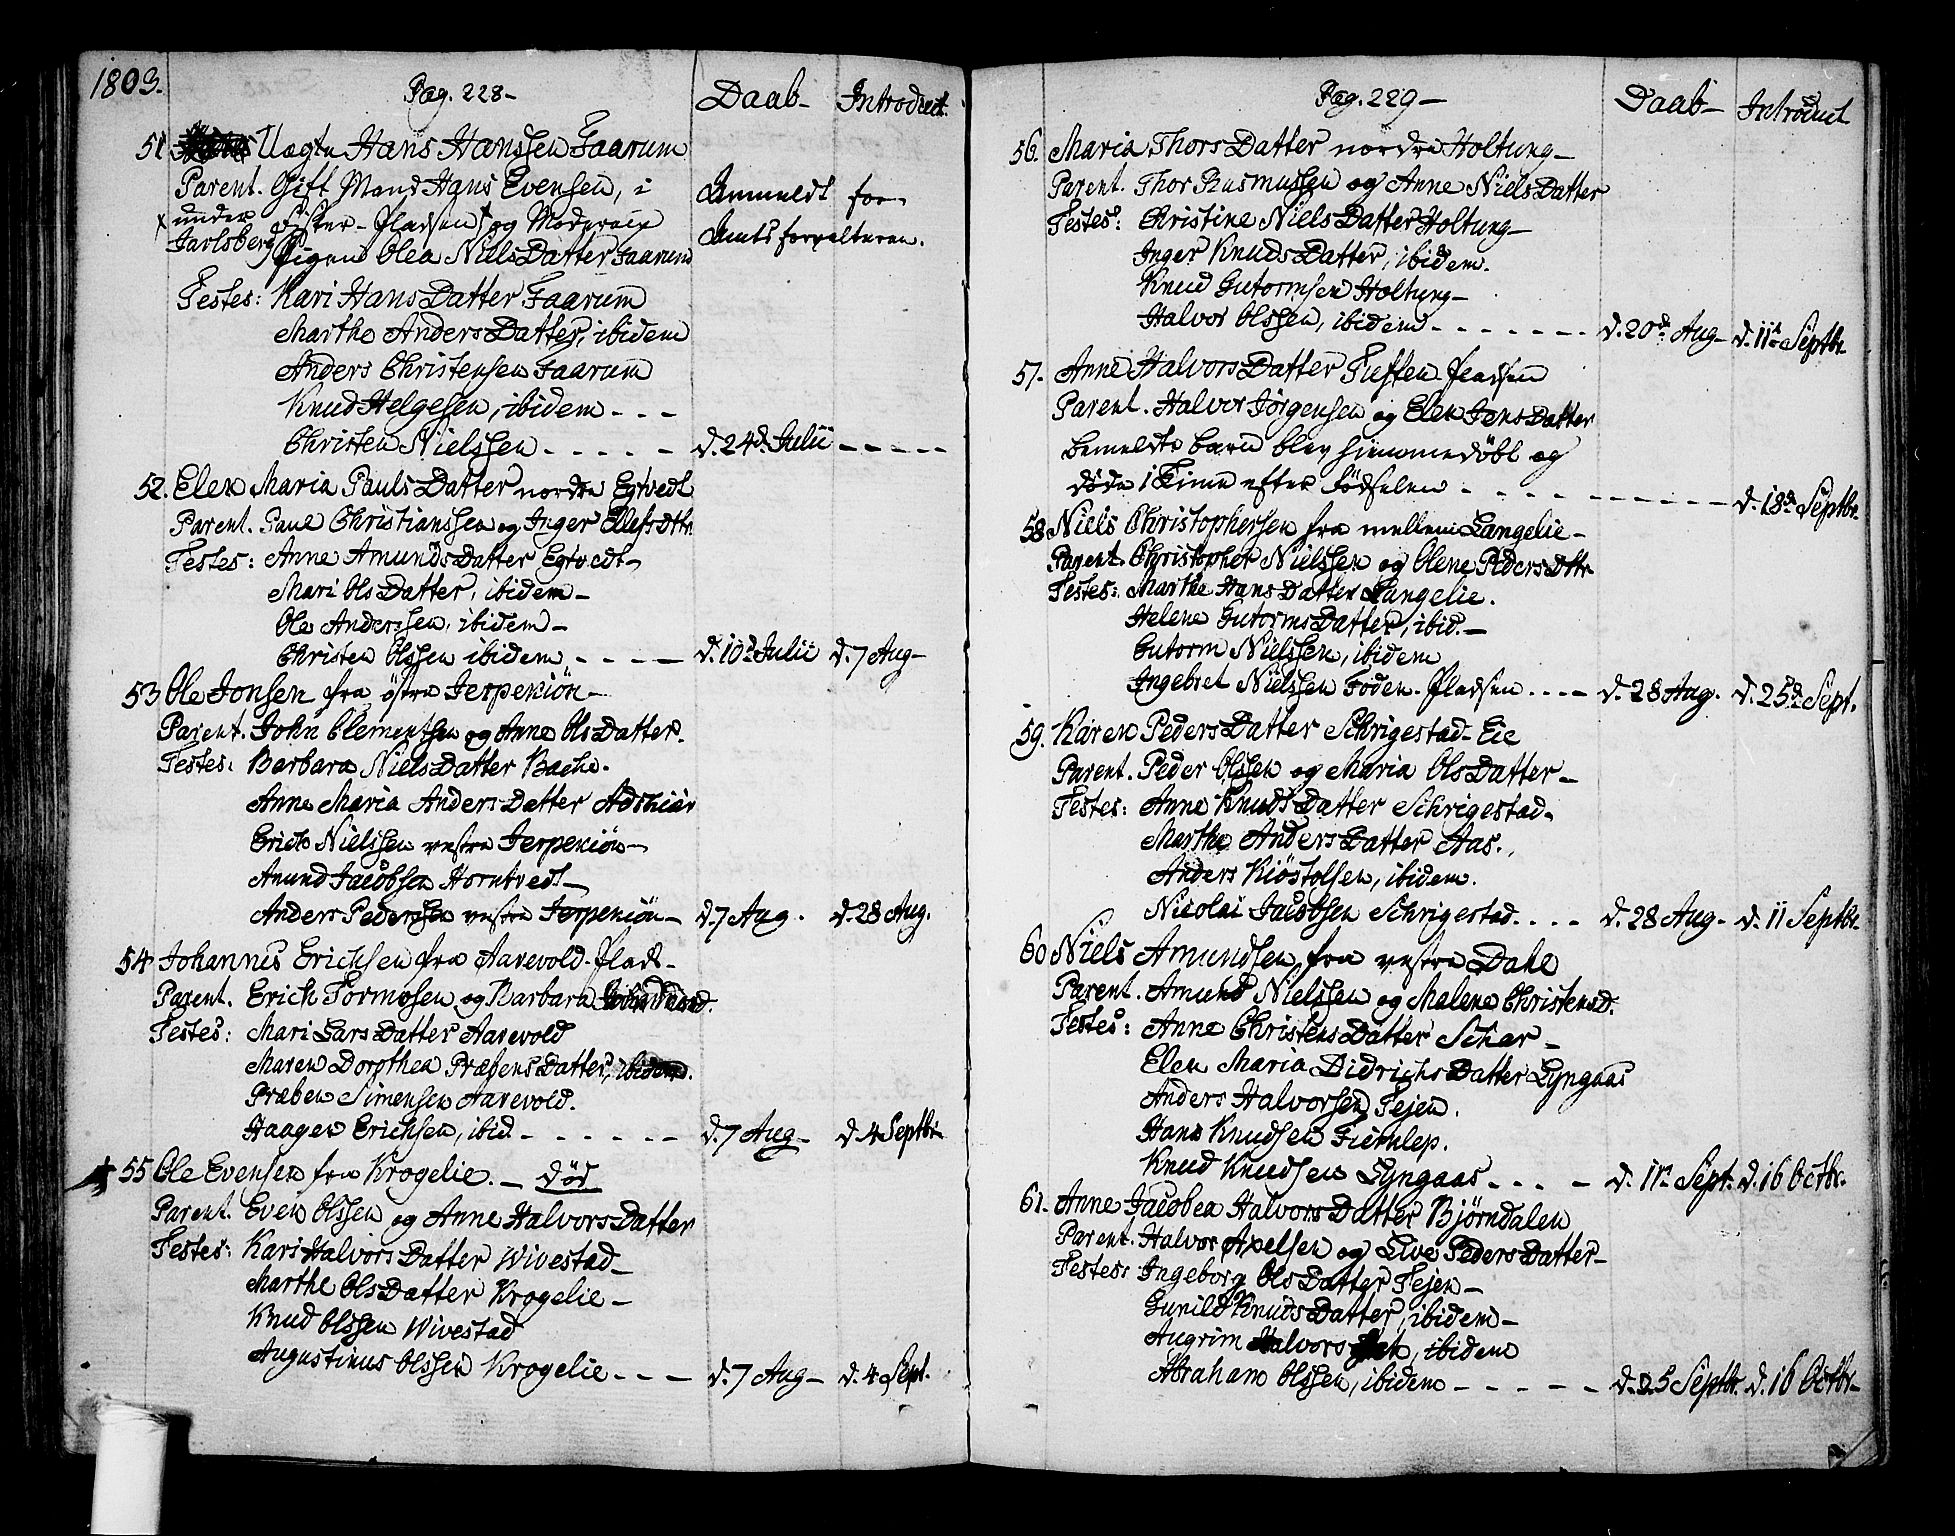 1803.
Pag. 228-
Daab-
Introduct.
51 Uægte Hans Hanssen Faarum
Parent. Gift Mand Hans Evensen, i
x under Jarlsberg
Pladsen x og Moderen
Pigen Olea NielsDatter Faarum
Anmeldt for
Amtsforvalteren.
Testes: Kari HansDatter Faarum
Marthe AndersDatter, ibidem
Anders Christensen Faarum
Knud Helgesen, ibidem - - -
Christen Nielssen - - - - - d. 24d. Julii - - - - -
52. Elen Maria PaulsDatter nordre Egtvedt
Parent. Paul Christianssen og Inger EllefsDttr
Testes: Anne AmundsDatter Egtvedt-
Mari OlsDatter, ibidem-
Ole Anderssen, ibidem-
Christen Olssen ibidem - - - - d. 10d. Julii d. 7 Aug-
53 Ole Jonsen fra östre Jerpekiön-
Parent. John Clementsen og Anne OlsDatter.
Testes: Barbara NielsDatter Bache.
Anne Maria AndersDatter Adskiær
Erich Nielssen vestre Jerpekiön-
Amund Jacobsen Horntvedt-
Anders Pederssen vestre Jerpekiön- d. 7 Aug. d. 28 Aug.
54 Johannes Erichsen fra Aarevold-Plads-
Parent. Erich Tormosen og Barbara
Testes: Mari LarsDatter Aarevold
Maren Dorothea PræbensDatter, ibidem.
Præben Simensen Aarevold.
Haagen Erichsen, ibid. - - - - - - d. 7 Aug- d. 4 Septbr.
55 Ole Evensen fra Krogelie. - död
Parent. Even Olssen og Anne HalvorsDatter
Testes: Kari HalvorsDatter Wivestad-
Marthe OlsDatter Krogelie-
Knud Olssen Wivestad
Augustinus Olssen Krogelie - - - - d. 7 Aug- d. 4 Sept.
Pag. 229-
Daab-
Introduct
56. Maria ThorsDatter nordre Holtung-
Parent. Thor Rasmussen og Anne NielsDatter
Testes: Christine NielsDatter Holtung-
Inger KnudsDatter, ibidem.
Knud Gutormsen Holtung-
Halvor Olssen, ibidem - - - - - - - d. 20de Aug- d. 11te Septbr.
57. Anne HalvorsDatter Tuften-Pladsen
Parent. Halvor Jörgensen og Elen JensDatter
bemeldte barn blev hiemmedöbt og
döde 1 Time efter födselen - - - - - - - - - - - d. 18de Septbr.
58 Niels Christophersen fra mellem Langelie-
Parent. Christopher Nielssen og Olene PedersDttr
Testes: Marthe HansDatter Langelie.
Helene GutormsDatter, ibid.-
Gutorm Nielssen, ibidem
Ingebret Nielssen Foden-Pladsen - - - - d. 28 Aug. d. 25de Sept.
59. Karen PedersDatter Schrigestad-Eie
Parent. Peder Olssen og Maria OlsDatter-
Testes: Anne KnudsDatter Schrigestad-
Marthe AndersDatter Aas.
Anders Kiöstolsen, ibidem.
Nicolai Jacobsen Schrigestad. - - - d. 28 Aug- d. 11 Septbr.
60 Niels Amundsen fra vestre Dahl
Parent. Amund Nielssen og Malene Christensd.
Testes: Anne ChristensDatter Schar-
Elen Maria DidrichsDatter Lyngaas
Anders Halvorsen Tejen.
Hans Knudsen
Knud Knudsen Lyngaas - - - - d. 11te Sept. d. 16 Octbr.
61. Anne Jacobea HalvorsDatter Björndalen
Parent. Halvor Axelsen og Live PedersDatter-
Testes: Ingeborg OlsDatter Tejen-
Gunild KnudsDatter, ibidem-
Augrim Halvors, ibidem
Abraham Olssen, ibidem - - - - - d. 25 Septbr. d. 16 Octbr-